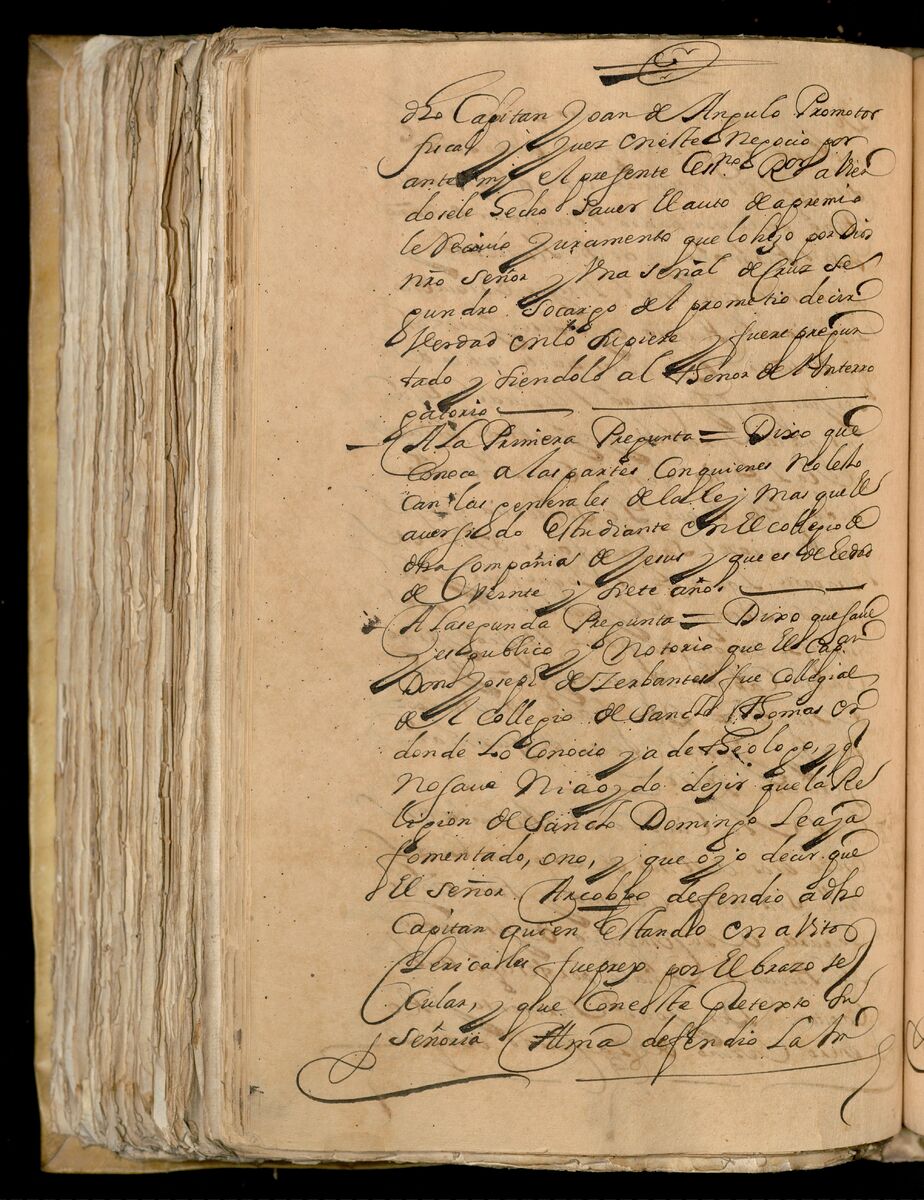 dho Capitan Joan de Angulo Promotor
fiscal y Juez en este Negocio por
ante mj el presente Essno Ror avien
dosele hecho saver El auto de apremio
le Recivio Juramento que lo hizo por Dios
nro señor y Vna señal de Cruz Se
gun dro Socargo del prometio decir
Verdad en lo supiere y fuere pregun
tado y siendolo al thenor del Interro
gatorio
A La Primera Pregunta = Dixo que
Conoce a las partes Con quienes No le to
can las generales de la ley Mas que El
aver sido Estudiante en El collegio de
dha Compañia de Jesus y que es de Edad
de Veinte y siete años
A la segunda Pregunta = Dixo que save
y es publico y Notorio que El Capan
Don Joseph de Zerbantes fue Collegial
de el Collegio de Sancto Thomas en
donde Lo Conocio ya de theologo, y q
No save Ni a oydo dezir que la Re
ligion de Sancto Domingo Le aya
fomentado, o no, y que oyo decir que
El señor Arcobpo defendio a dho
Capitan quien Estando en avito
Clerical fue prezo por El brazo se
Cular, y que Con este Pretexto Su
señoria Illma defendio La Im